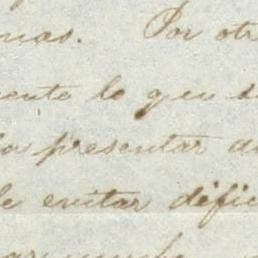 mas. Por otr
ente lo que s
presentar a
de evitar defic